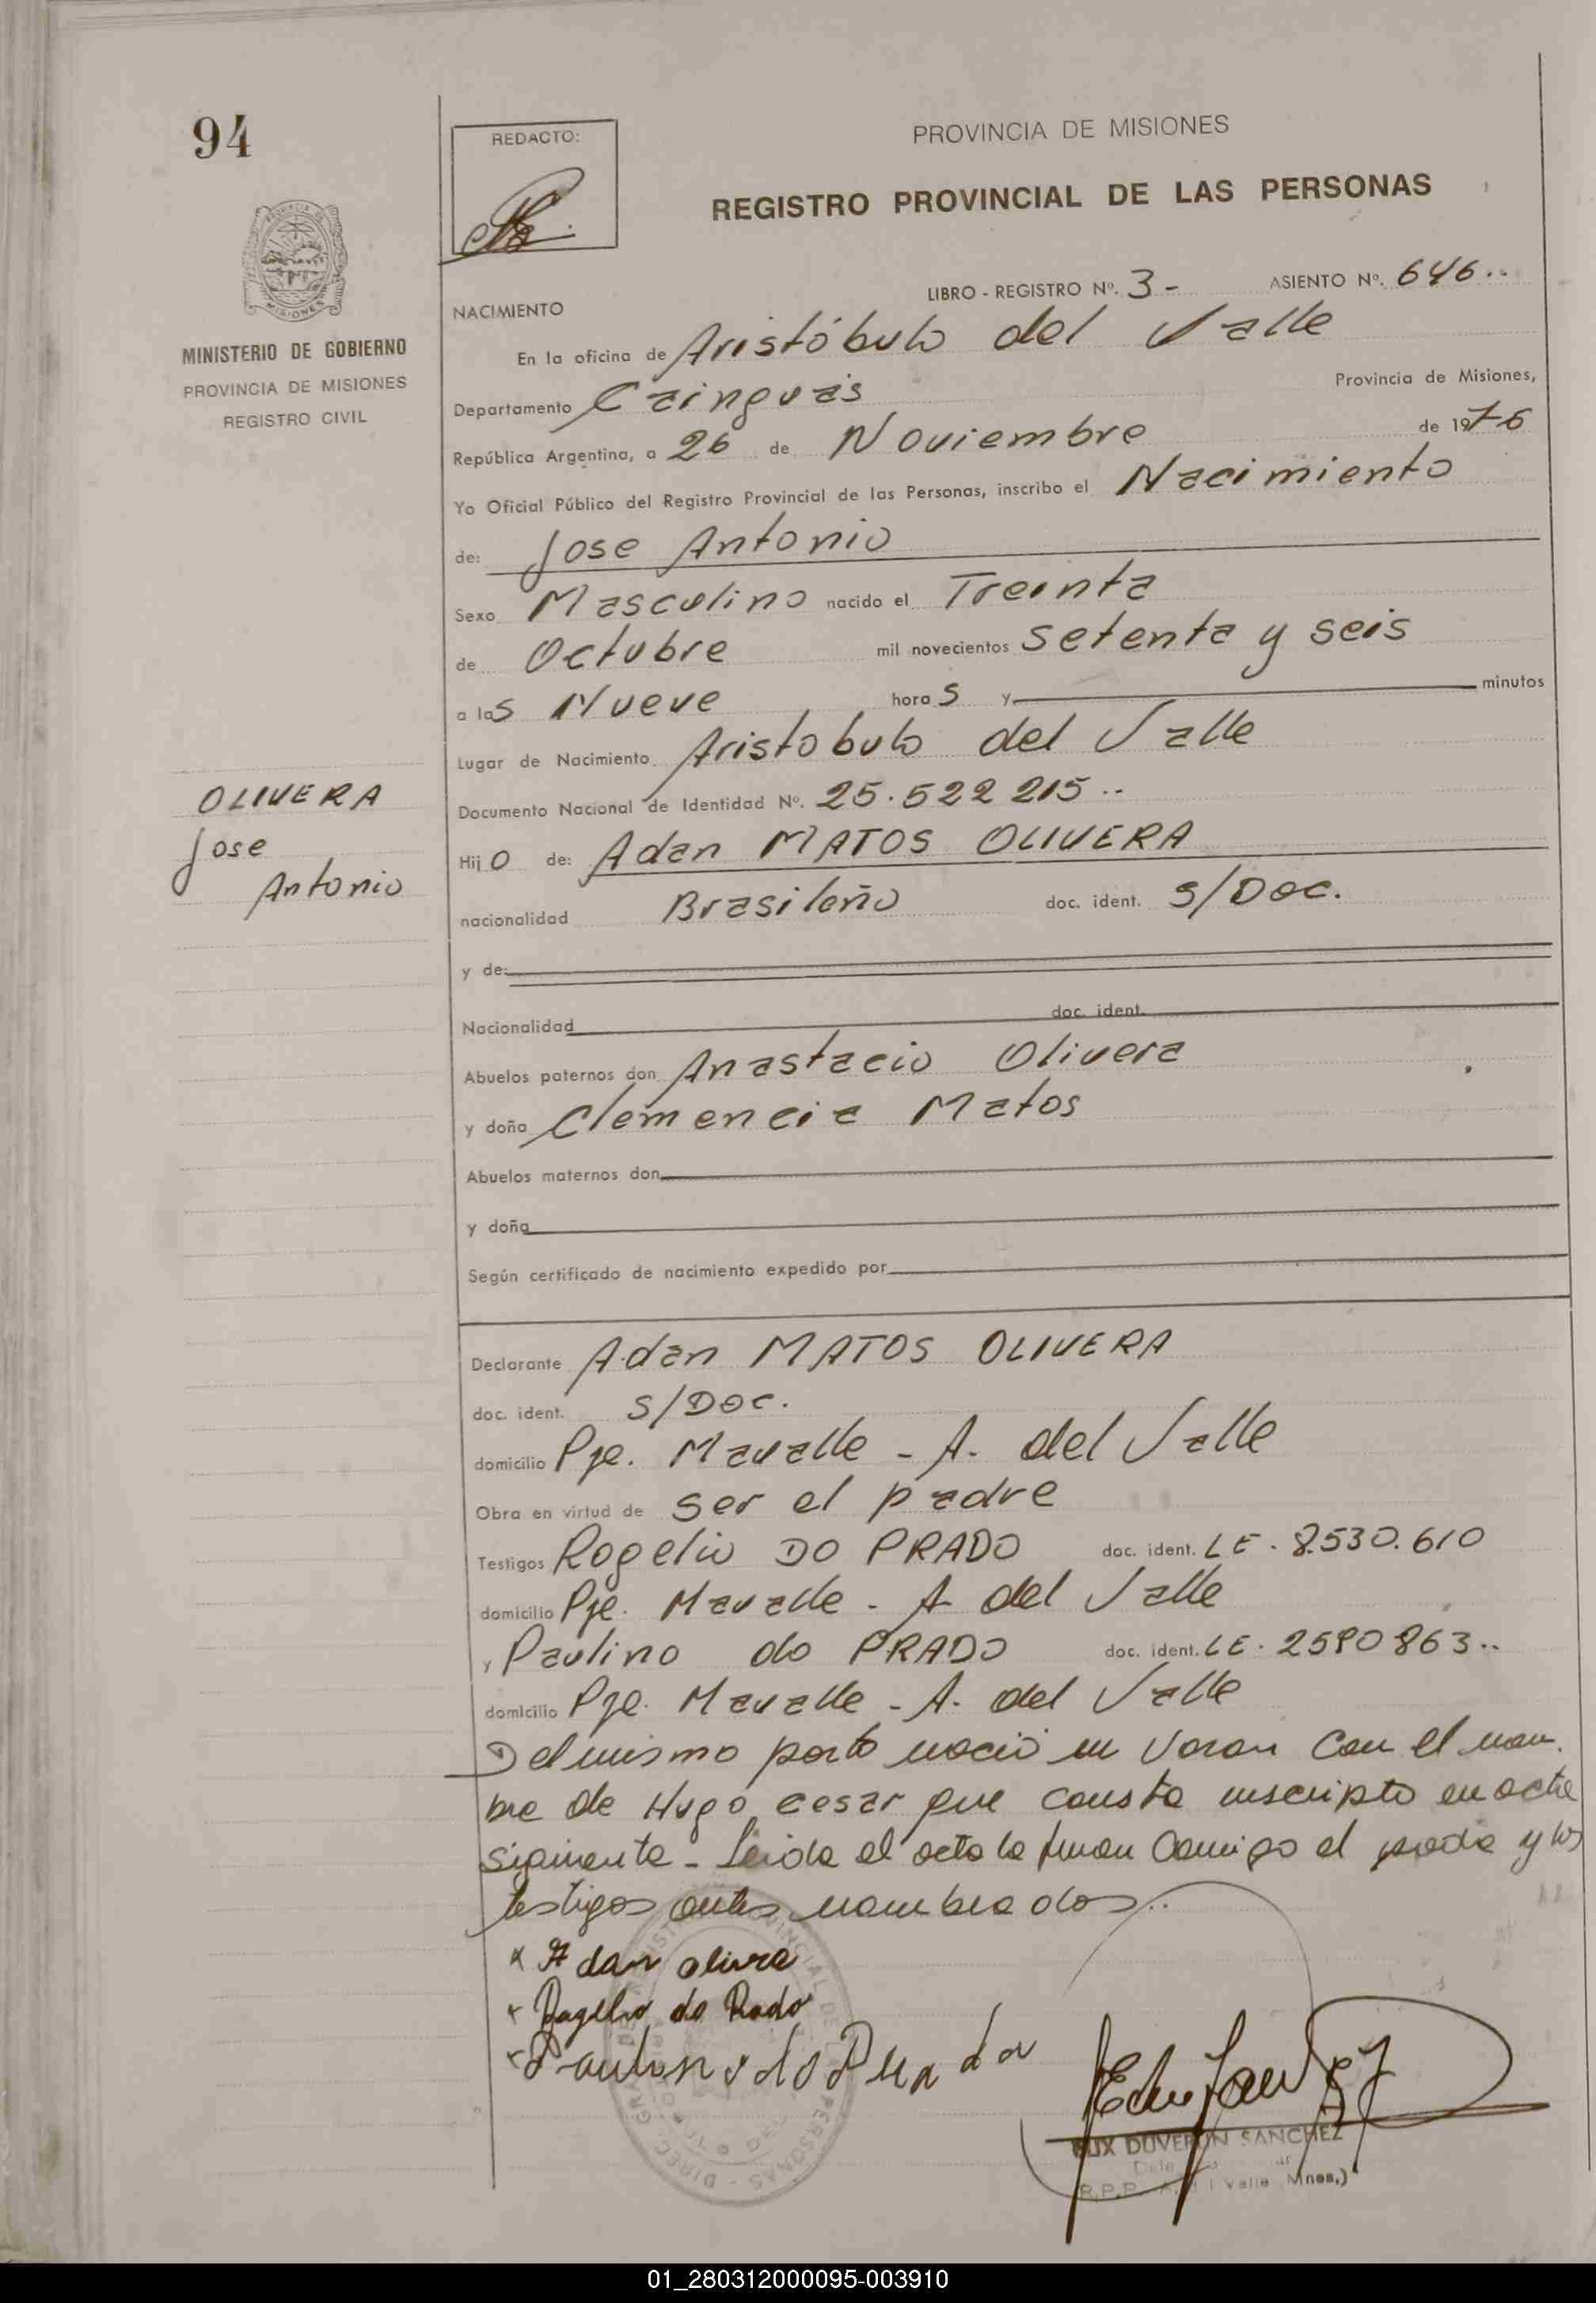 94
REDACTO:
PROVINCIA DE MISIONES
REGISTRO PROVINCIAL DE LAS PERSONAS
PROVINCIA DE
MISIONES
MINISTERIO DE GOBIERNO
PROVINCIA DE MISIONES
REGISTRO CIVIL
LIBRO - REGISTRO Nº. 3 - ASIENTO Nº. 646..
NACIMIENTO
En la oficina de Aristóbulo del Valle
Departamento Cainguás Provincia de Misiones,
República Argentina, a 26 de Noviembre de 1976
Yo Oficial Público del Registro Provincial de las Personas, inscribo el Nacimiento
de: Jose Antonio
Sexo Masculino nacido el Treinta
de Octubre mil novecientos setenta y seis
a las Nueve horas y minutos
Lugar de Nacimiento Aristobulo del Valle
Documento Nacional de Identidad Nº. 25.522 215..
OLIVERA
Jose
Antonio
Hijo de: Adan MATOS OLIVERA
nacionalidad Brasileño doc. ident. S/Doc.
y de:
Nacionalidad doc. ident.
Abuelos paternos don Anastacio Olivera
y doña Clemencia Matos
Abuelos maternos don
y doña
Según certificado de nacimiento expedido por
Declarante Adan MATOS OLIVERA
doc. ident. S/Doc.
domicilio Pje. Mavalle - A. del Valle
Obra en virtud de ser el padre
Testigos Rogelio DO PRADO doc. ident. LE. 8.530.610
domicilio Pje. Mavalle - A del Valle
y Paulino do PRADO doc. ident. LE. 2580863..
domicilio Pje. Mavalle - A. del Valle
Del mismo parto nació un Varon con el nom
bre de Hugo cesar que consta inscripto en acta
siguiente - Leida el acta la firman conmigo el padre y los
testigos antes nombrados..
x Adan olivera
x Rogelio do Prado
x Paulino do Prado
DUVERON SANCHEZ
R.P.P. Valle Mnes.)
01_280312000095-003910